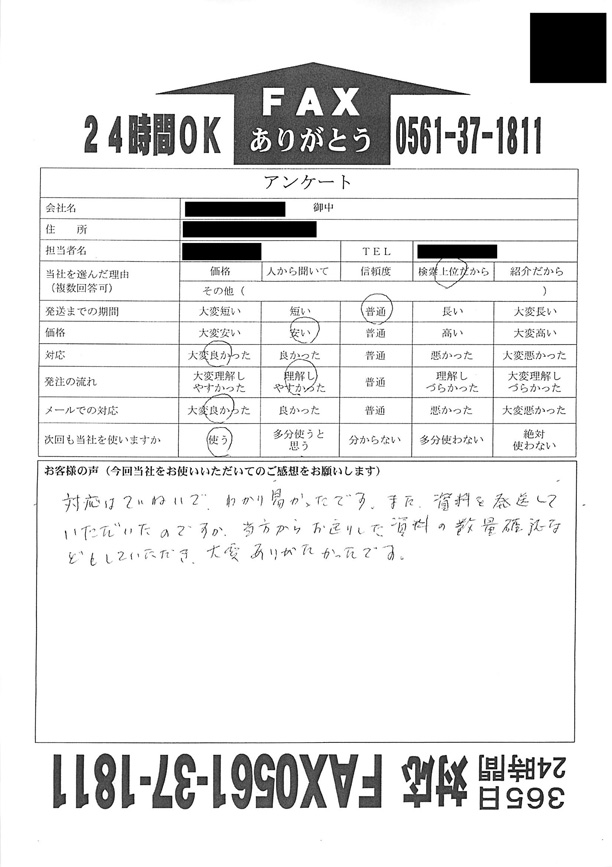 FAX
ありがとう
24時間OK
0561-37-1811
アンケート
会社名 御中
住 所
担当者名 TEL
当社を選んだ理由（複数回答可） 価格 人から聞いて 信頼度 検索上位だから 紹介だから
その他（ ）
発送までの期間 大変短い 短い 普通 長い 大変長い
価格 大変安い 安い 普通 高い 大変高い
対応 大変良かった 良かった 普通 悪かった 大変悪かった
発注の流れ 大変理解しやすかった 理解しやすかった 普通 理解しづらかった 大変理解しづらかった
メールでの対応 大変良かった 良かった 普通 悪かった 大変悪かった
次回も当社を使いますか 使う 多分使うと思う 分からない 多分使わない 絶対使わない
お客様の声（今回当社をお使いいただいてのご感想をお願いします）
対応はていねいで、わかり易かったです。また、資料を発送して
いただいたのですが、当方からお送りした資料の数量確認な
どもしていただき、大変ありがたかったです。
365日
24時間
対応 FAX0561-37-1811